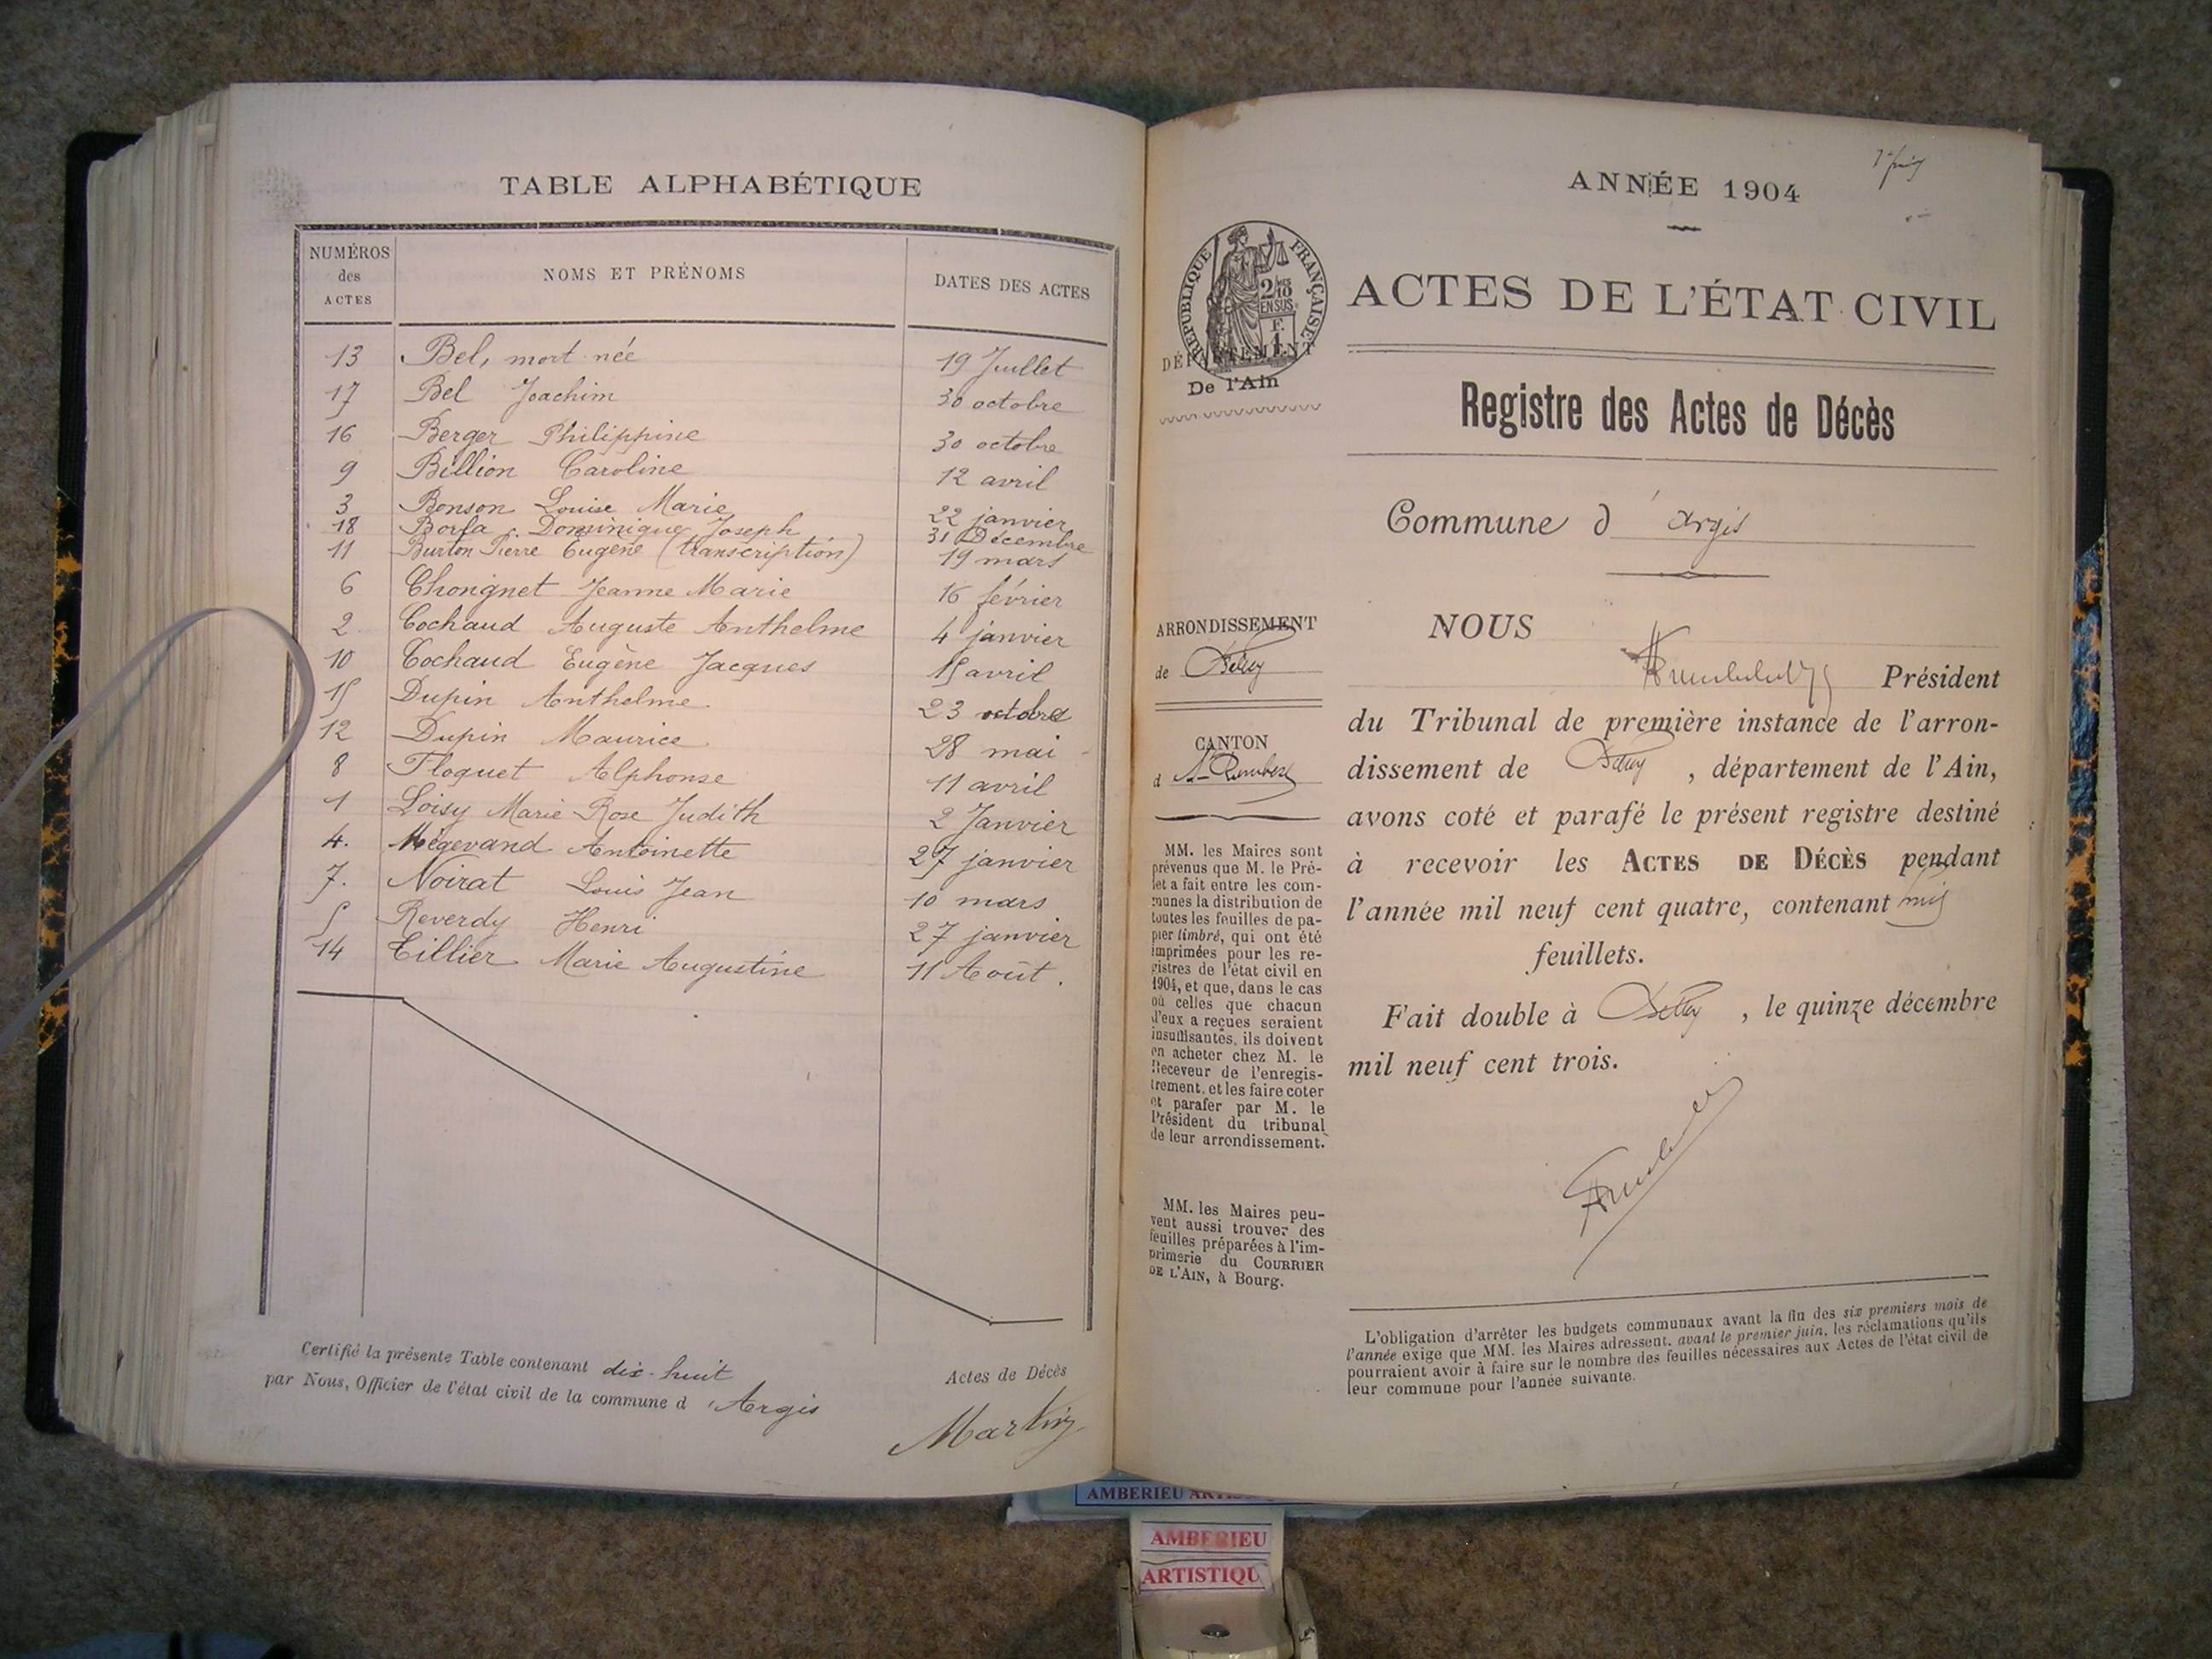 TABLE ALPHABÉTIQUE
NUMÉROS des ACTES NOMS ET PRÉNOMS DATES DES ACTES
13 Bel, mort née 19 Juillet
17 Bel Joachim 30 octobre
16 Berger Philippine 30 octobre
9 Billion Caroline 12 avril
3 Bonson Louise Marie 22 janvier
18 Borla Dominique Joseph 31 Décembre
11 Burton Pierre Eugène (transcription) 19 mars
6 Chongnet Jeanne Marie 16 février
2 Cochaud Auguste Anthelme 4 janvier
10 Cochaud Eugène Jacques 15 avril
15 Dupin Anthelme 23 octobre
12 Dupin Maurice 28 mai
8 Floquet Alphonse 11 avril
1 Loisy Marie Rose Judith 2 Janvier
4. Mégevand Antoinette 27 janvier
7. Noirat Louis Jean 10 mars
5 Reverdy Henri 27 janvier
14 Tillier Marie Augustine 11 Août.
Certifié la présente Table contenant dix-huit Actes de Décès
par Nous, Officier de l'état civil de la commune d'Argis
Martin
ANNÉE 1904
RÉPUBLIQUE FRANÇAISE
2/10 EN SUS
F. 1
DÉPARTEMENT
De l'Ain
ACTES DE L'ÉTAT CIVIL
Registre des Actes de Décès
Commune d'Argis
ARRONDISSEMENT
de Belley
CANTON
d St Rambert
MM. les Maires sont
prévenus que M. le Pré-
fet a fait entre les com-
munes la distribution de
toutes les feuilles de pa-
pier timbré, qui ont été
imprimées pour les re-
gistres de l'état civil en
1904, et que, dans le cas
où celles que chacun
d'eux a reçues seraient
insuffisantes, ils doivent
en acheter chez M. le
Receveur de l'enregis-
trement, et les faire coter
et parafer par M. le
Président du tribunal
de leur arrondissement.
MM. les Maires peu-
vent aussi trouver des
feuilles préparées à l'im-
primerie du COURRIER
DE L'AIN, à Bourg.
NOUS
Président
du Tribunal de première instance de l'arron-
dissement de Belley, département de l'Ain,
avons coté et parafé le présent registre destiné
à recevoir les ACTES DE DÉCÈS pendant
l'année mil neuf cent quatre, contenant
feuillets.
Fait double à Belley, le quinze décembre
mil neuf cent trois.
L'obligation d'arrêter les budgets communaux avant la fin des six premiers mois de
l'année exige que MM. les Maires adressent, avant le premier juin, les réclamations qu'ils
pourraient avoir à faire sur le nombre des feuilles nécessaires aux Actes de l'état civil de
leur commune pour l'année suivante.
AMBERIEU
AMBERIEU
ARTISTIQU